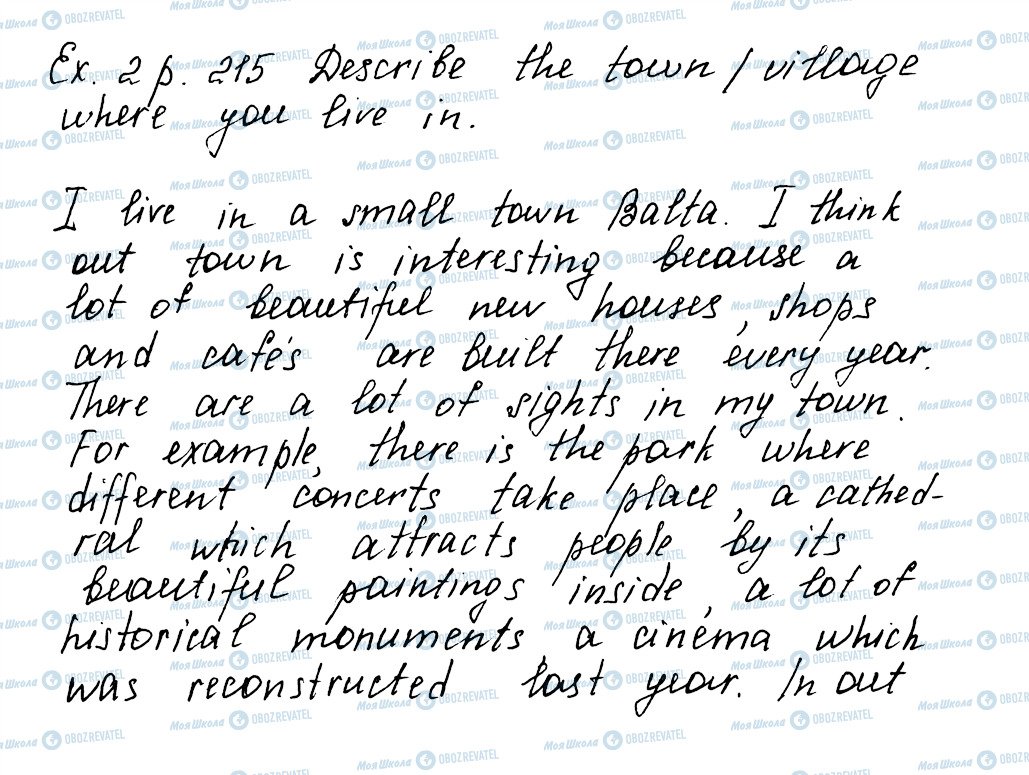 Ex. 2 p. 215 Describe the town / village
where you live in.
I live in a small town Balta. I think
out town is interesting because a
lot of beautiful new houses, shops
and cafe's are built there every year.
There are a lot of sights in my town.
For example, there is the park where
different concerts take place, a cathed-
ral which attracts people by its
beautiful paintings inside, a lot of
historical monuments, a cinema which
was reconstructed last year. In out